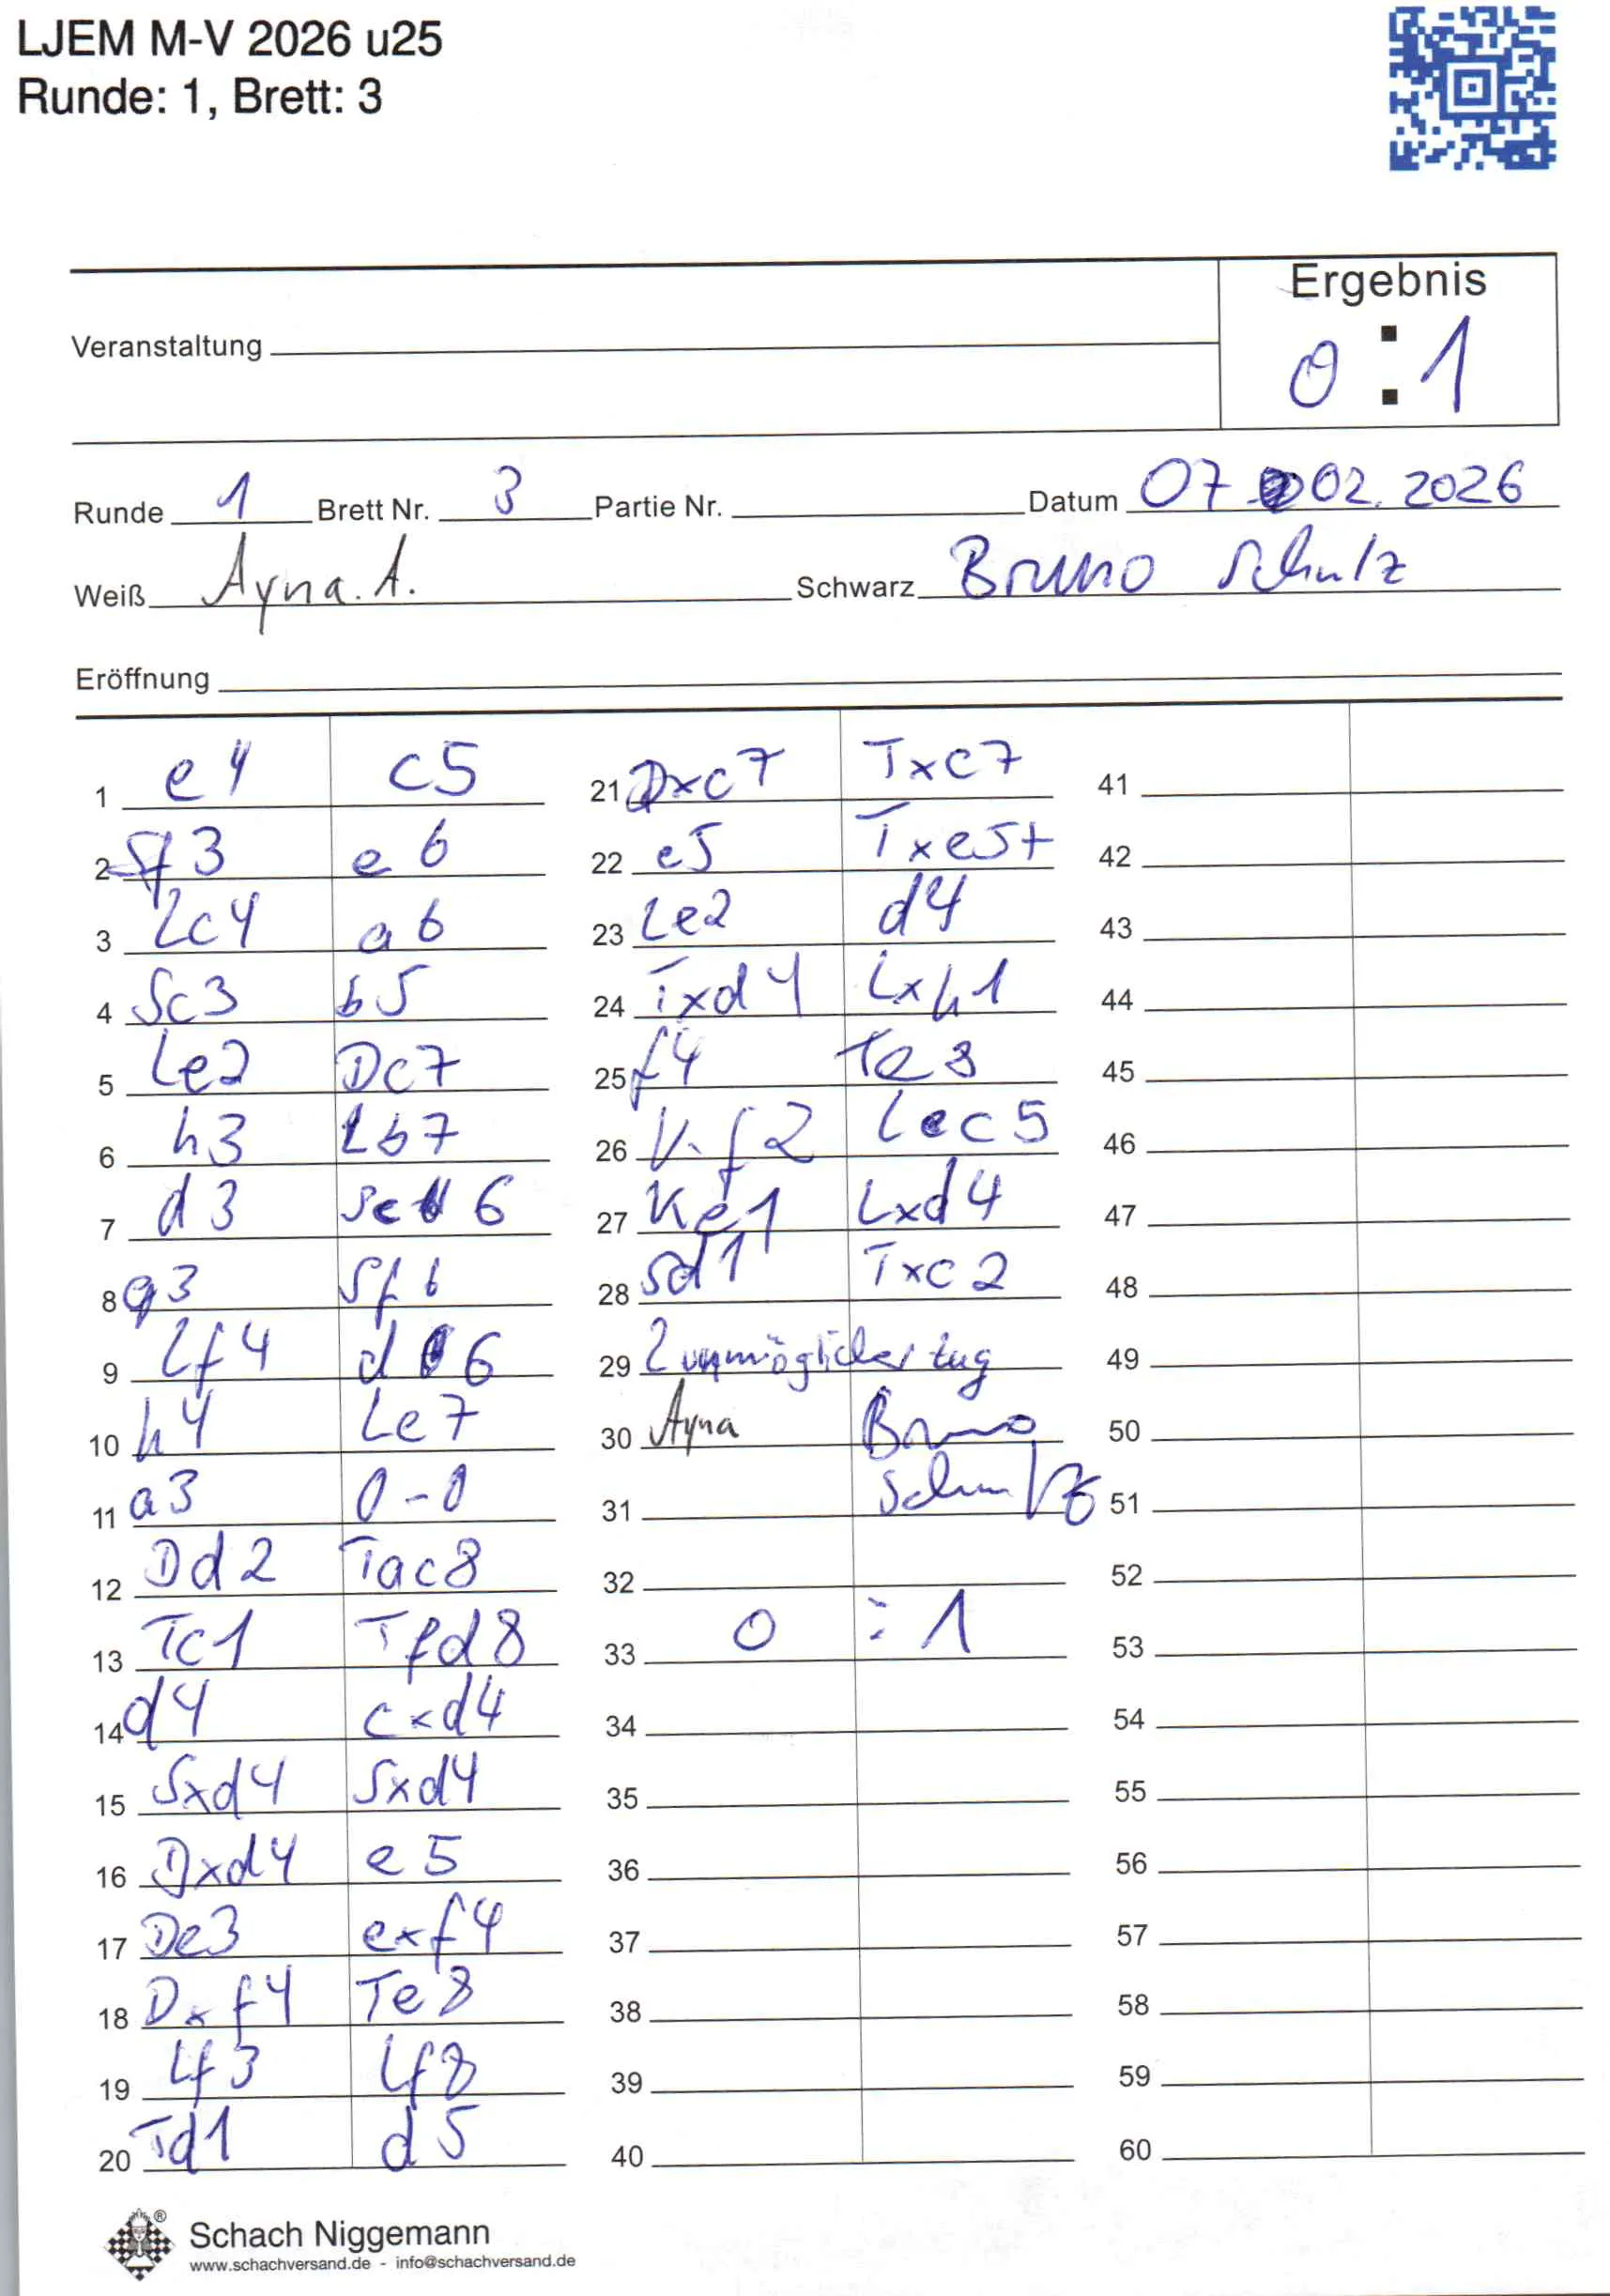 LJEM M-V 2026 u25
Runde: 1, Brett: 3
Ergebnis
Veranstaltung
0 : 1
Runde 1 Brett Nr. 3 Partie Nr. Datum 07 02. 2026
Weiß Ayna. A. Schwarz Bruno Schulz
Eröffnung
1 e4 c5
2 Sf3 e6
3 Lc4 a6
4 Sc3 b5
5 Le2 Dc7
6 h3 Lb7
7 d3 Sc6
8 g3 Sf6
9 Lf4 d6
10 h4 Le7
11 a3 0-0
12 Dd2 Tac8
13 Tc1 Tfd8
14 d4 cxd4
15 Sxd4 Sxd4
16 Dxd4 e5
17 De3 exf4
18 Dxf4 Te8
19 Lf3 Lf8
20 Td1 d5
21 Dxc7 Txc7
22 e5 Txe5+
23 Le2 d4
24 Txd4 Lxh1
25 f4 Te8
26 Kf2 Lc5
27 Ke1 Lxd4
28 Sd1 Txc2
29 2 unmöglicher Zug
30 Ayna Bruno
31 Schulz
32
33 0 : 1
34
35
36
37
38
39
40
41
42
43
44
45
46
47
48
49
50
51
52
53
54
55
56
57
58
59
60
®
Schach Niggemann
www.schachversand.de - info@schachversand.de